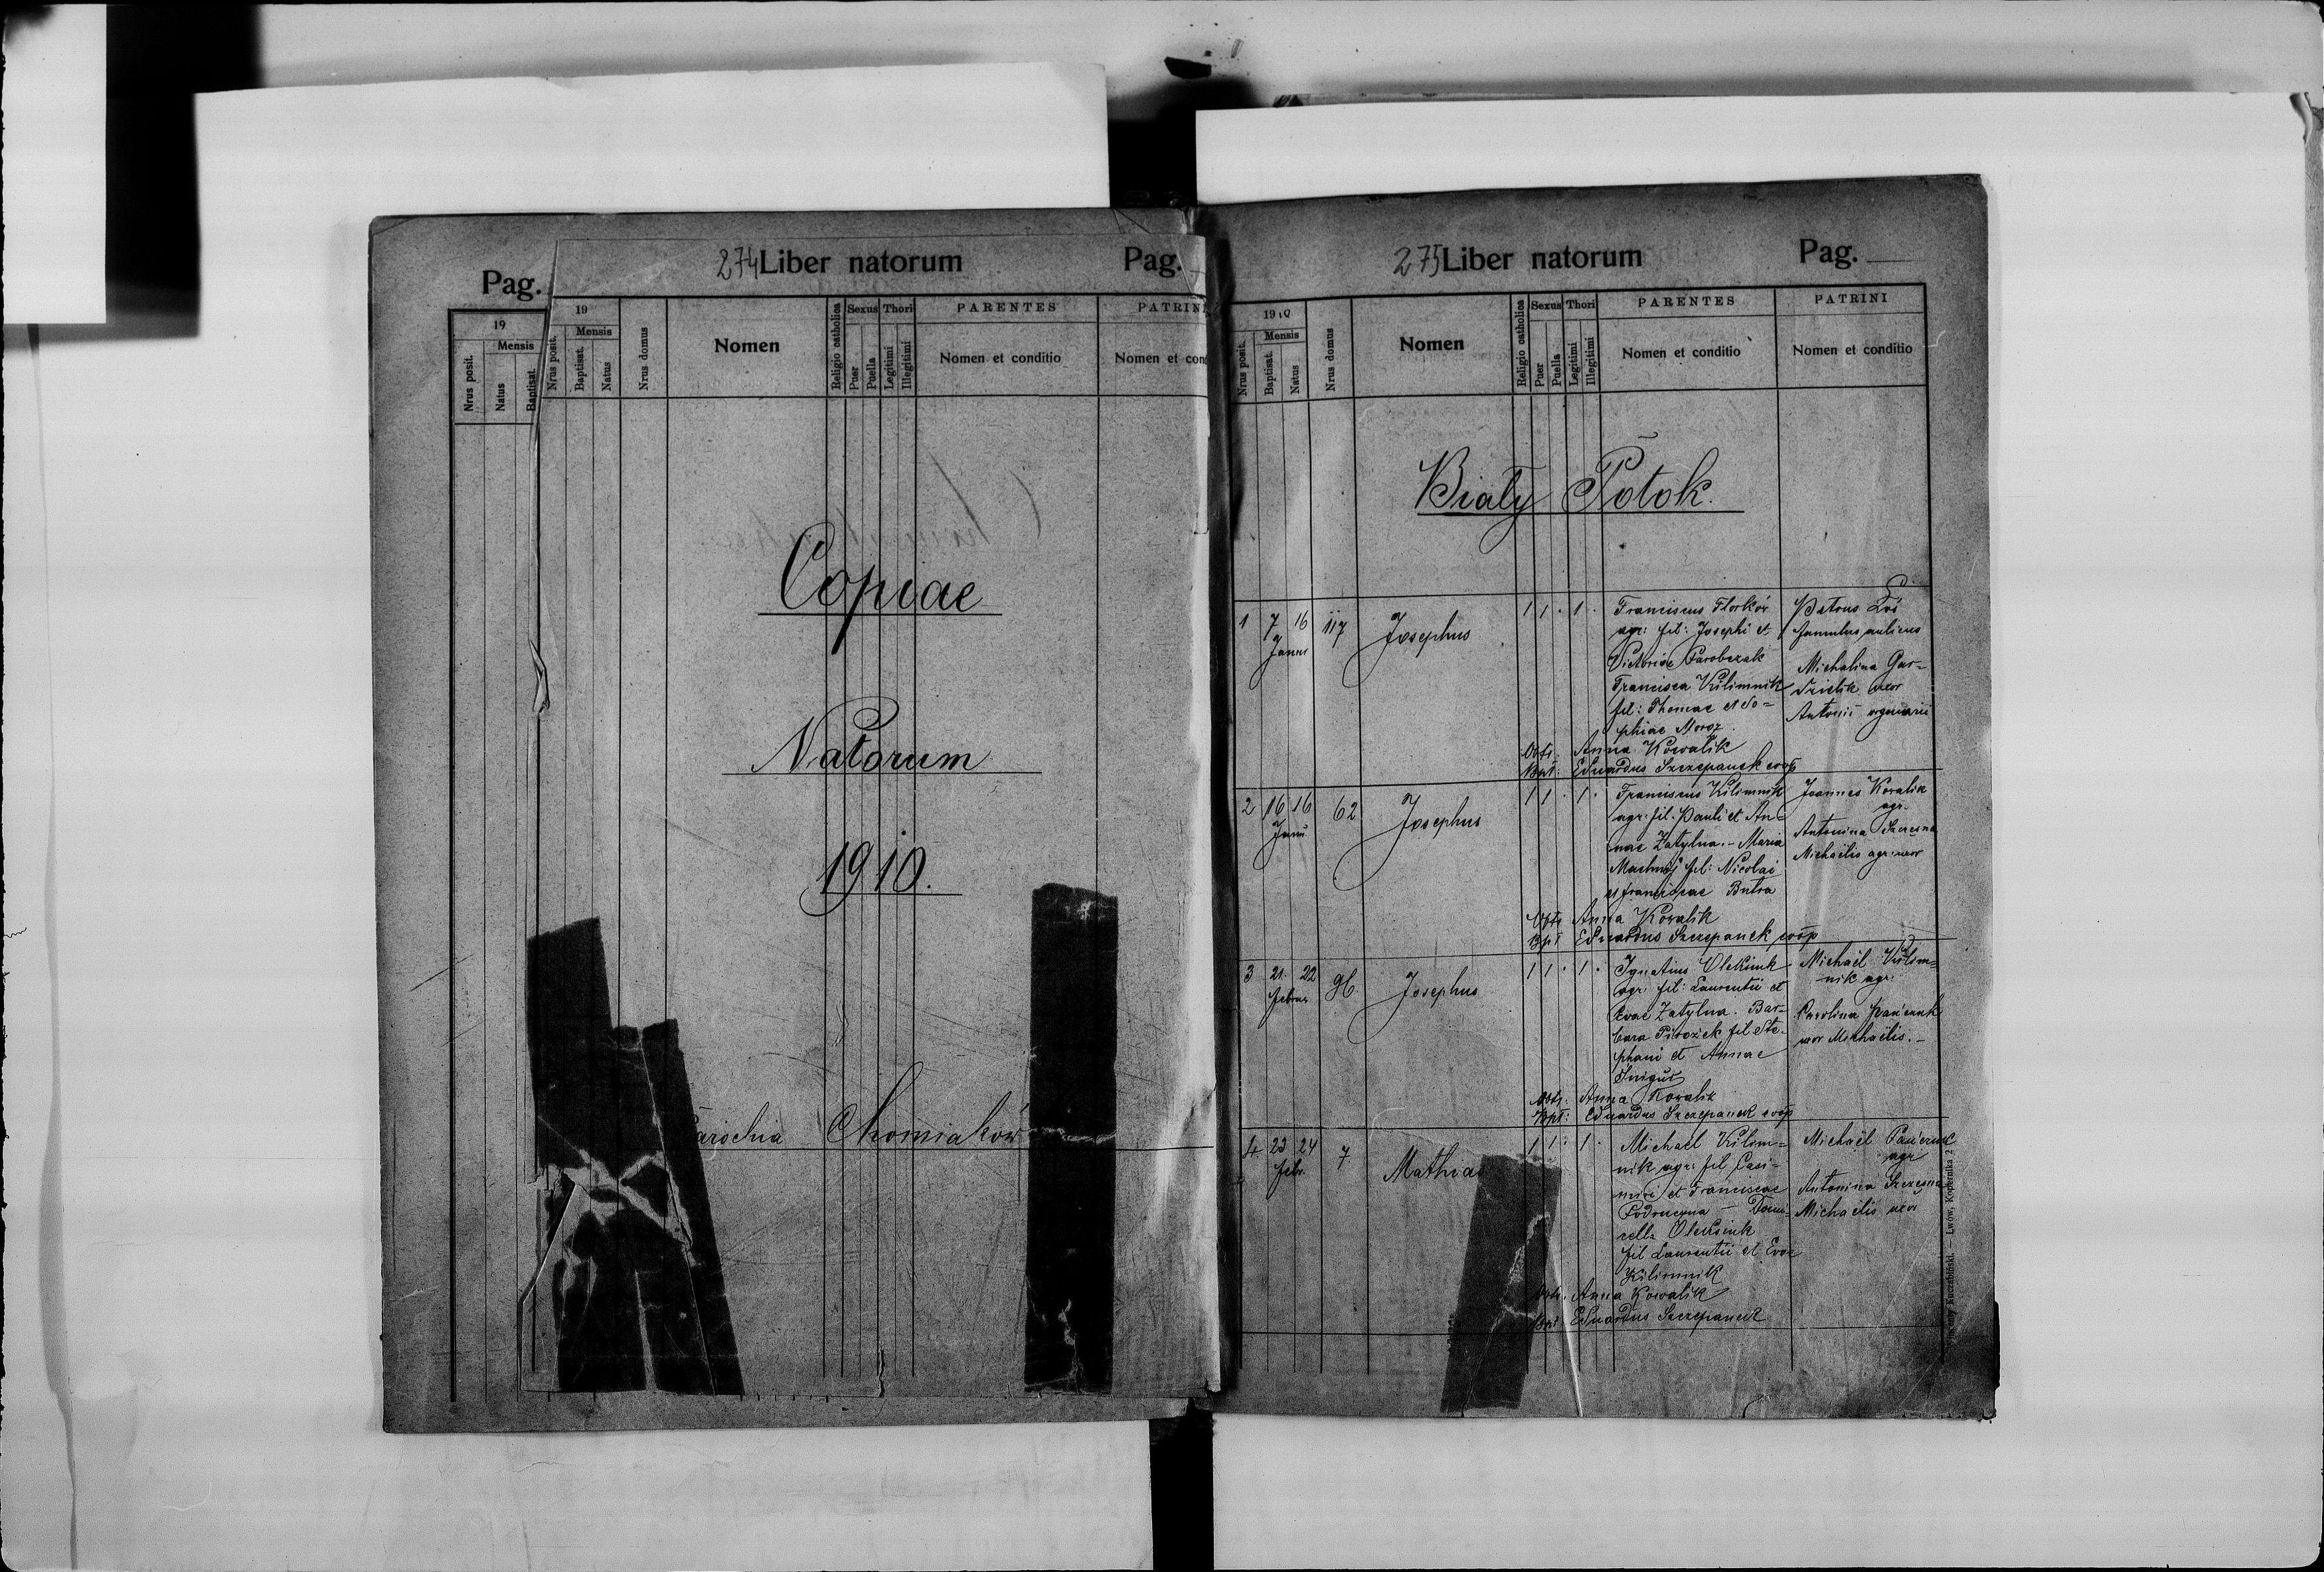 Pag.
19
Mensis
Nrus posit.
Natus
Baptisat.
274 Liber natorum Pag.
19
Mensis
Nrus posit.
Baptisat.
Natus
Nrus domus
Nomen
Religio catholica
Sexus
Puer
Puella
Thori
Legitimi
Illegitimi
PARENTES
Nomen et conditio
PATRINI
Nomen et con
Copiae
Natorum
1910.
arochia Chomiaków
275 Liber natorum Pag.
1910
Mensis
Nrus posit.
Baptisat.
Natus
Nrus domus
Nomen
Religio catholica
Sexus
Puer
Puella
Thori
Legitimi
Illegitimi
PARENTES
Nomen et conditio
PATRINI
Nomen et conditio
Biały Potok.
1 7 16 117 Josephus 1 1 · 1 ·
Janu
Franciscus Florków
agr: fil: Josephi et
Victoriae Parobczak
Francisca Kilimnik
fil: Thomae et So=
phiae Moroz
Petrus Łoś
famulus aulicus
Michalina Gar=
uxor
Antonii
Obst. Anna Kowalik
Bpt: Eduardus Szczepanek coop
2 16 16 62 Josephus 1 1 · 1 ·
Janu
Franciscus Kilimnik
agr. fil. Pauli et An=
nae Zatylna. - Maria
Machnij fil: Nicolai
et Franciscae Butra
Joannes Kowalik
agr.
Antonina Szczęsna
Michaëlis agr. uxor
Obst. Anna Kowalik
Bpt Eduardus Szczepanek coop
3 21. 22 96. Josephus 1 1 · 1 ·
Febru
Ignatius Oleksiuk
agr. fil: Laurentii et
Evae Zatylna. Bar-
bara Pirożek fil Ste-
phani et Annae
Michaël Kilim=
nik agr.
Carolina
uxor Michaëlis. -
Obst. Anna Kowalik
Bpt: Eduardus Szczepanek coop
4 23 24 7 Mathias 1 1 · 1 ·
Febr.
Michaël Kilim=
nik agr. fil Casi=
miri et Franciscae
Oleksiuk
fil Laurentii et Evae
Kilimnik
Michaël
agr
Antonina Szczęsna
Michaëlis uxor
Obst. Anna Kowalik
Bpt Eduardus Szczepanek
Kuczabiński. — Lwów, Kopernika 2